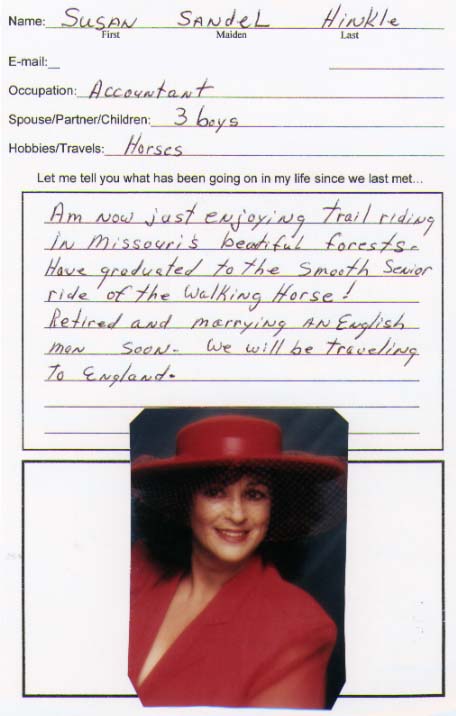 Name: Susan Sandel Hinkle
First Maiden Last
E-mail:
Occupation: Accountant
Spouse/Partner/Children: 3 boys
Hobbies/Travels: Horses
Let me tell you what has been going on in my life since we last met...
Am now just enjoying trail riding
in Missouri's beautiful forests.
Have graduated to the smooth senior
ride of the Walking Horse!
Retired and marrying an English
man soon. We will be traveling
to England.